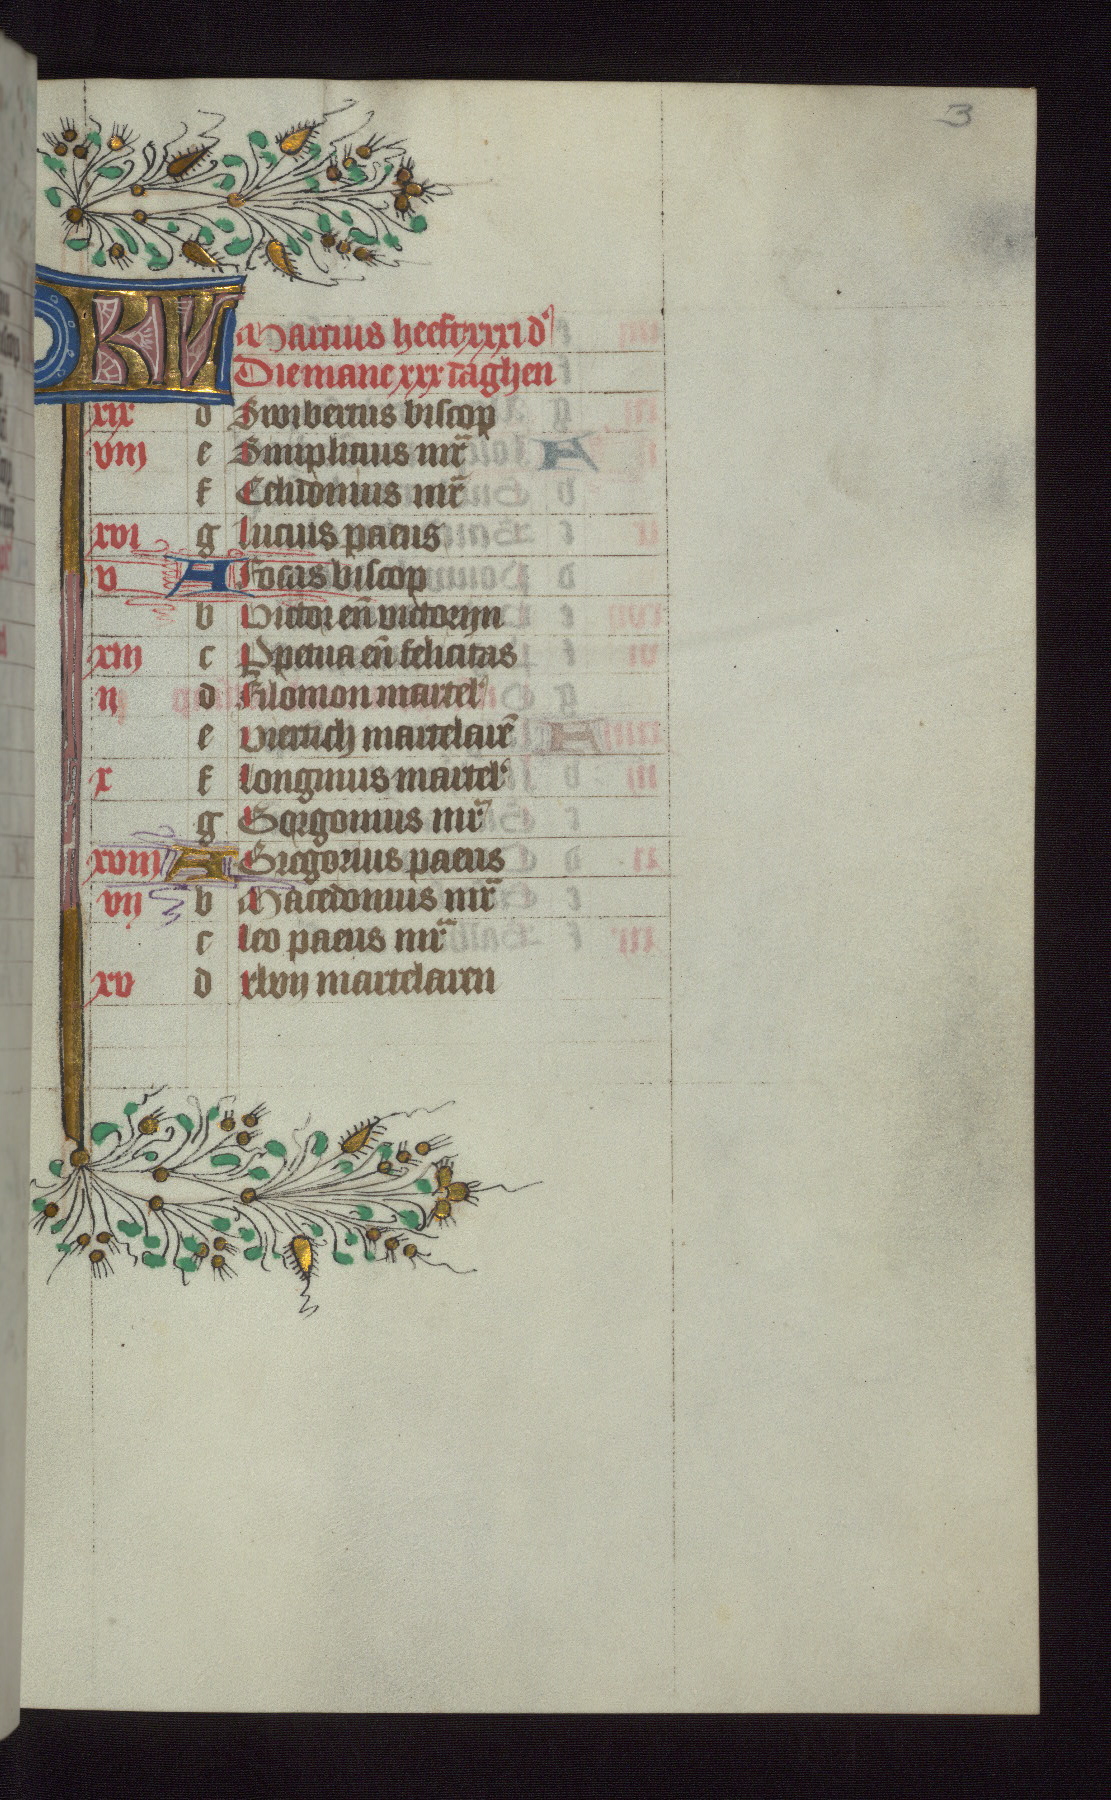 3
KL
Marcius heeft xxxi d'
Die mane xxx daghen
xix d Swibertus biscop
viij e Simplicius mr̄
f Celidonius mr̄
xvi g Lucius paeus
v A Focas biscop
b Victor en̄ victorijn
xiij c Ꝑpetua en̄ felicitas
ij d Filomon martel'
e Viertich martelarē
x f Longinus martel'
g Gorgonius mr̄
xviij A Gregorius paeus
vij b Macedonius mr̄
c Leo paeus mr̄
xv d xlvij martelaren